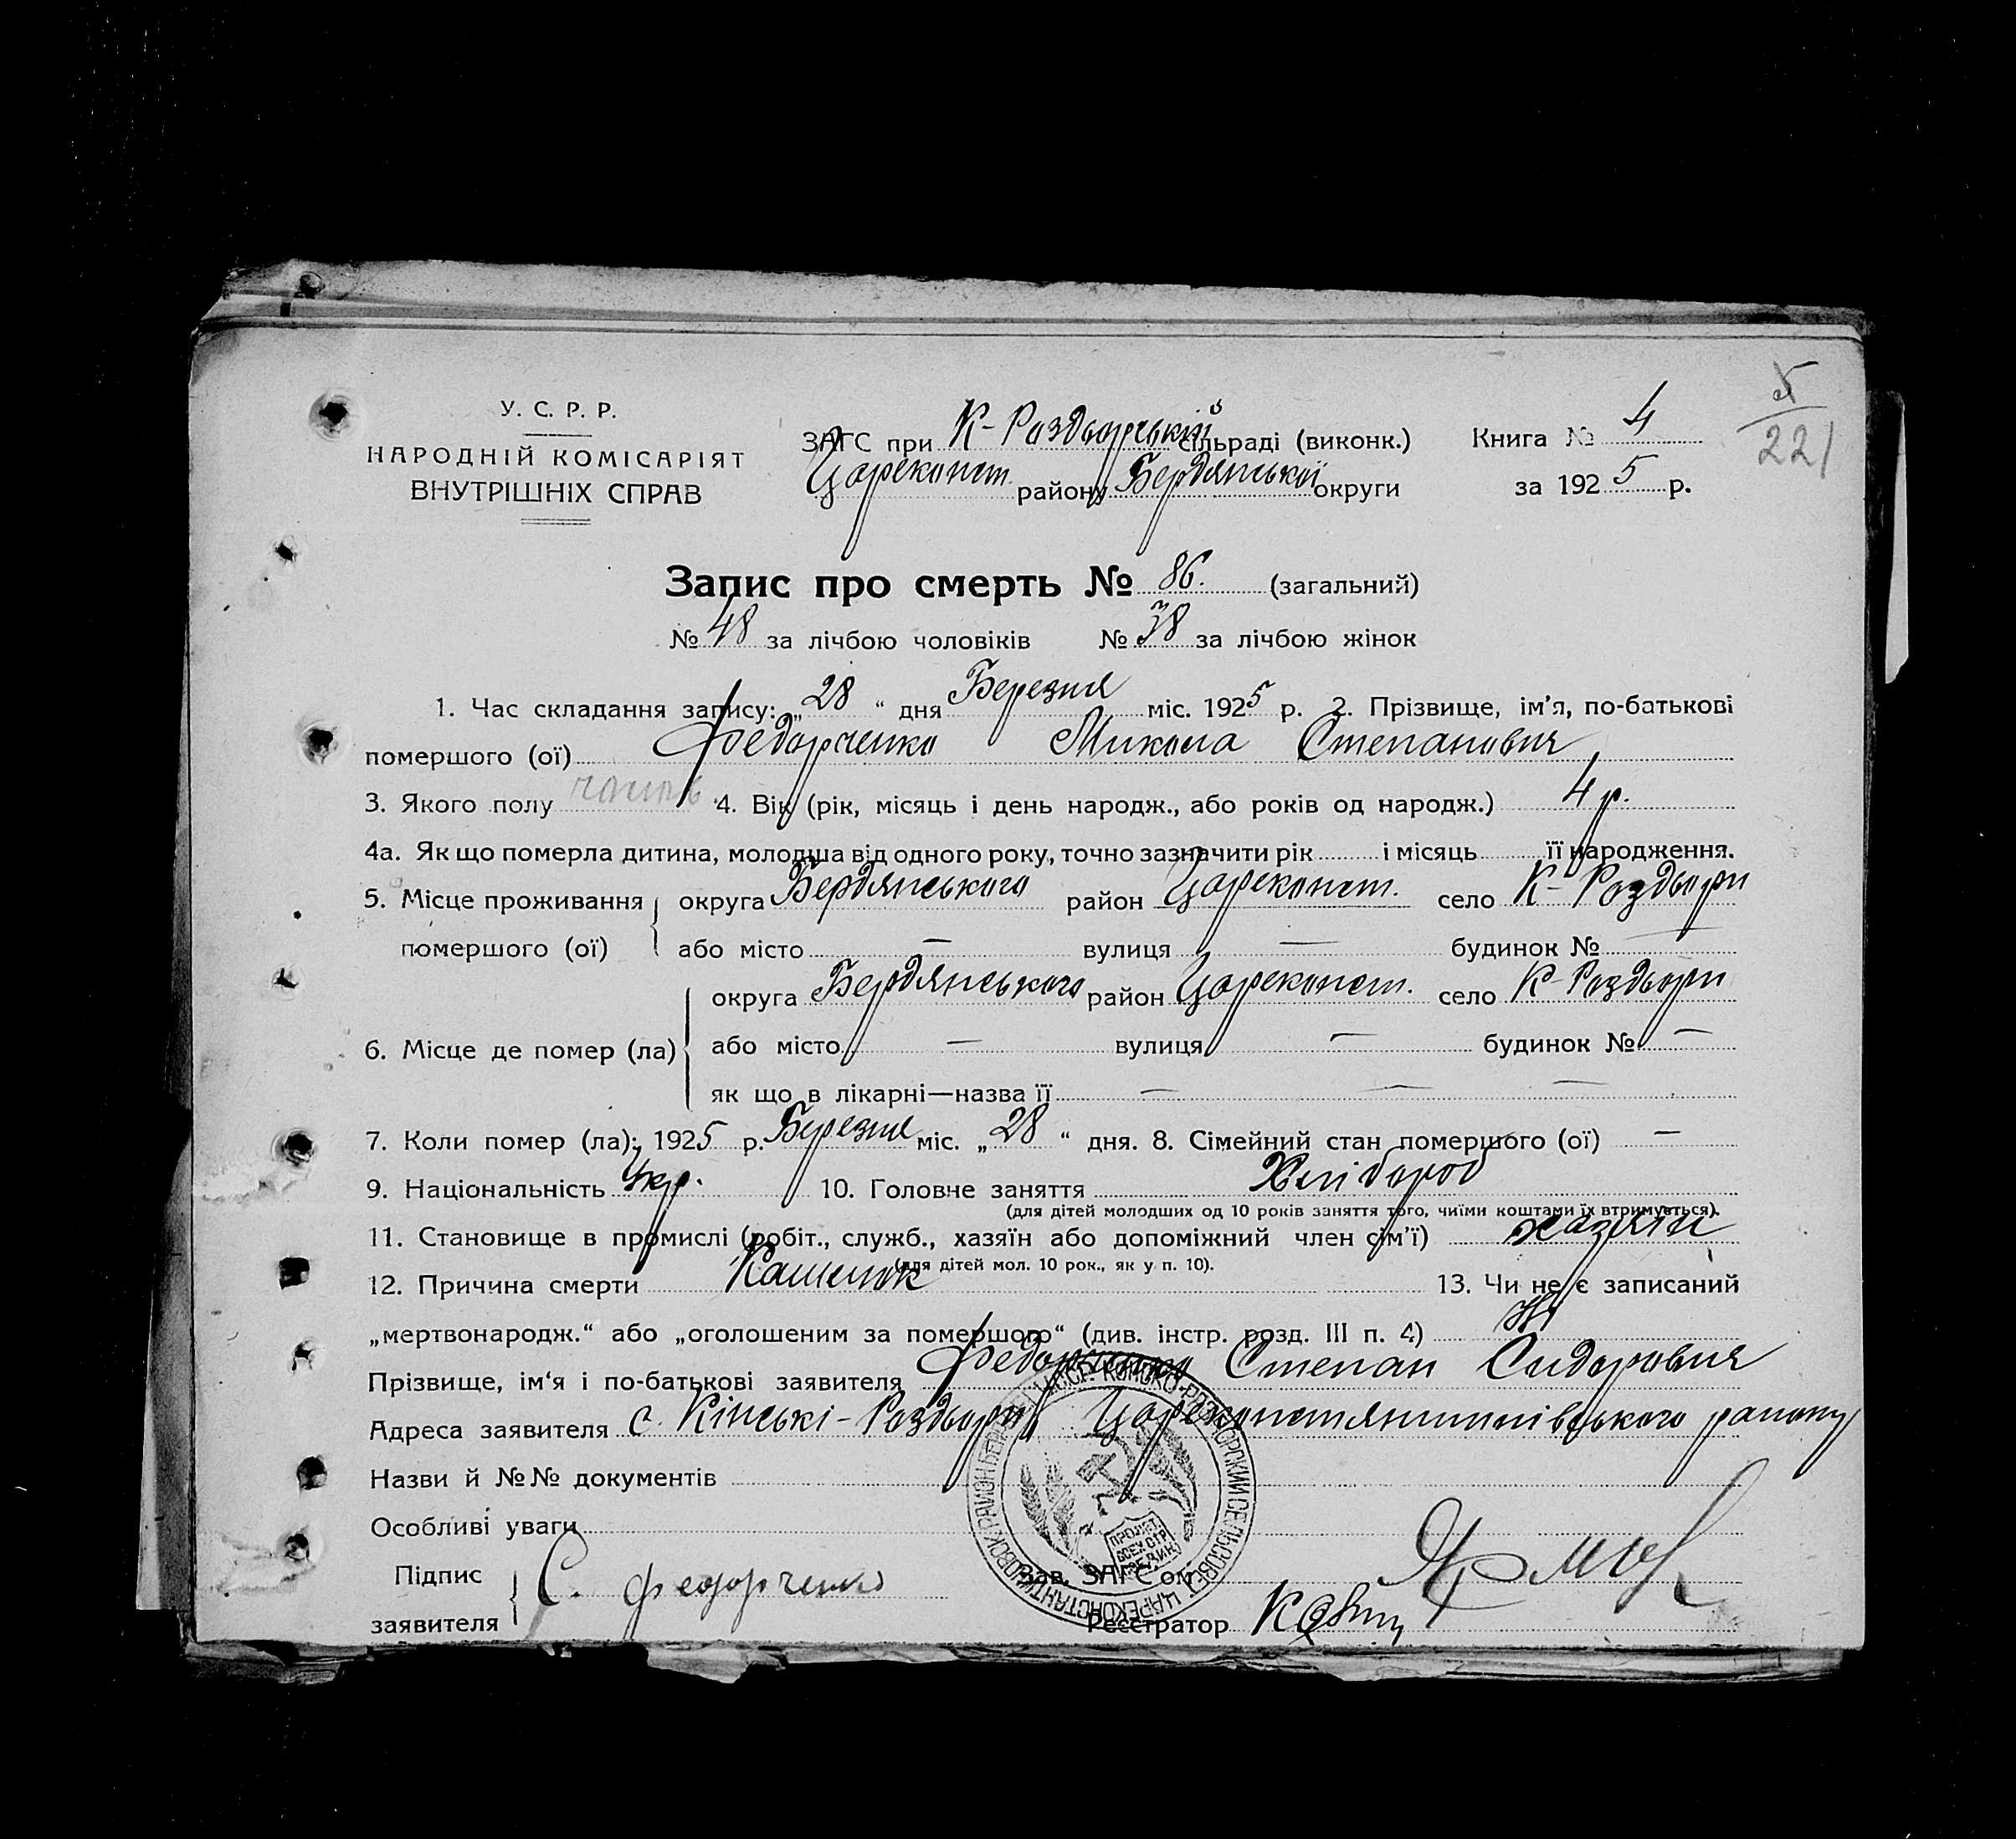 У. С. Р. Р.
НАРОДНІЙ КОМІСАРІЯТ
ВНУТРІШНІХ СПРАВ
ЗАГС при К-Роздорській сільраді (виконк.)
Цареконст. району Бердянської округи
Книга № 4
за 1925 р.
5
221
Запис про смерть № 86. (загальний)
№ 48 за лічбою чоловіків № 38 за лічбою жінок
1. Час складання запису: „28“ дня Березня міс. 1925 р. 2. Прізвище, ім'я, по-батькові
помершого (ої) Федорченко Микола Степанович
3. Якого полу чолов. 4. Вік (рік, місяць і день народж., або років од народж.) 4 р.
4а. Як що померла дитина, молодша від одного року, точно зазначити рік і місяць її народження.
5. Місце проживання помершого (ої) округа Бердянського район Цареконст. село К-Роздори
або місто — вулиця — будинок № —
6. Місце де помер (ла) округа Бердянського район Цареконст. село К-Роздори
або місто — вулиця — будинок № —
як що в лікарні—назва її — — —
7. Коли помер (ла): 1925 р. Березня міс. „28“ дня. 8. Сімейний стан помершого (ої) —
9. Національність Укр. 10. Головне заняття Хлібороб
(для дітей молодших од 10 років заняття того, чиїми коштами їх втримується).
11. Становище в промислі (робіт., служб., хазяїн або допоміжний член сім'ї) хазяїн
(для дітей мол. 10 рок., як у п. 10).
12. Причина смерти Кашлюк 13. Чи не є записаний
„мертвонародж.“ або „оголошеним за помершого“ (див. інстр. розд. III п. 4) Ні
Прізвище, ім'я і по-батькові заявителя Федорченко Степан Сидорович
Адреса заявителя с. Кінські-Роздори Цареконстянтинівського району
Назви й №№ документів
Особливі уваги
Підпис заявителя С. Федорченко
Зав. ЗАГС'ом
Реєстратор